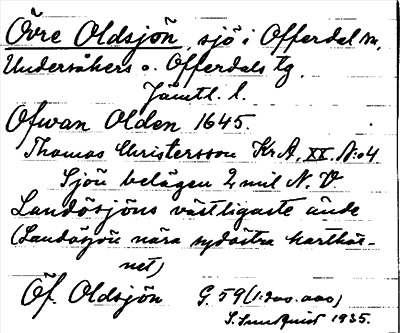 Övre Oldsjön, sjö i Offerdal m.
Undersåkers o. Offerdals tg.
Jämtl. l.
Ofwan Olden 1645.
Thomas Christersson Kr. A. XX. N:o 4
Sjön belägen 2 mil N. V
Landösjöns västligaste ände
(Landösjön nära sydöstra karthör-
net)
Öf. Oldsjön G. 59 (1:200.000)
S. Sundquist 1935.